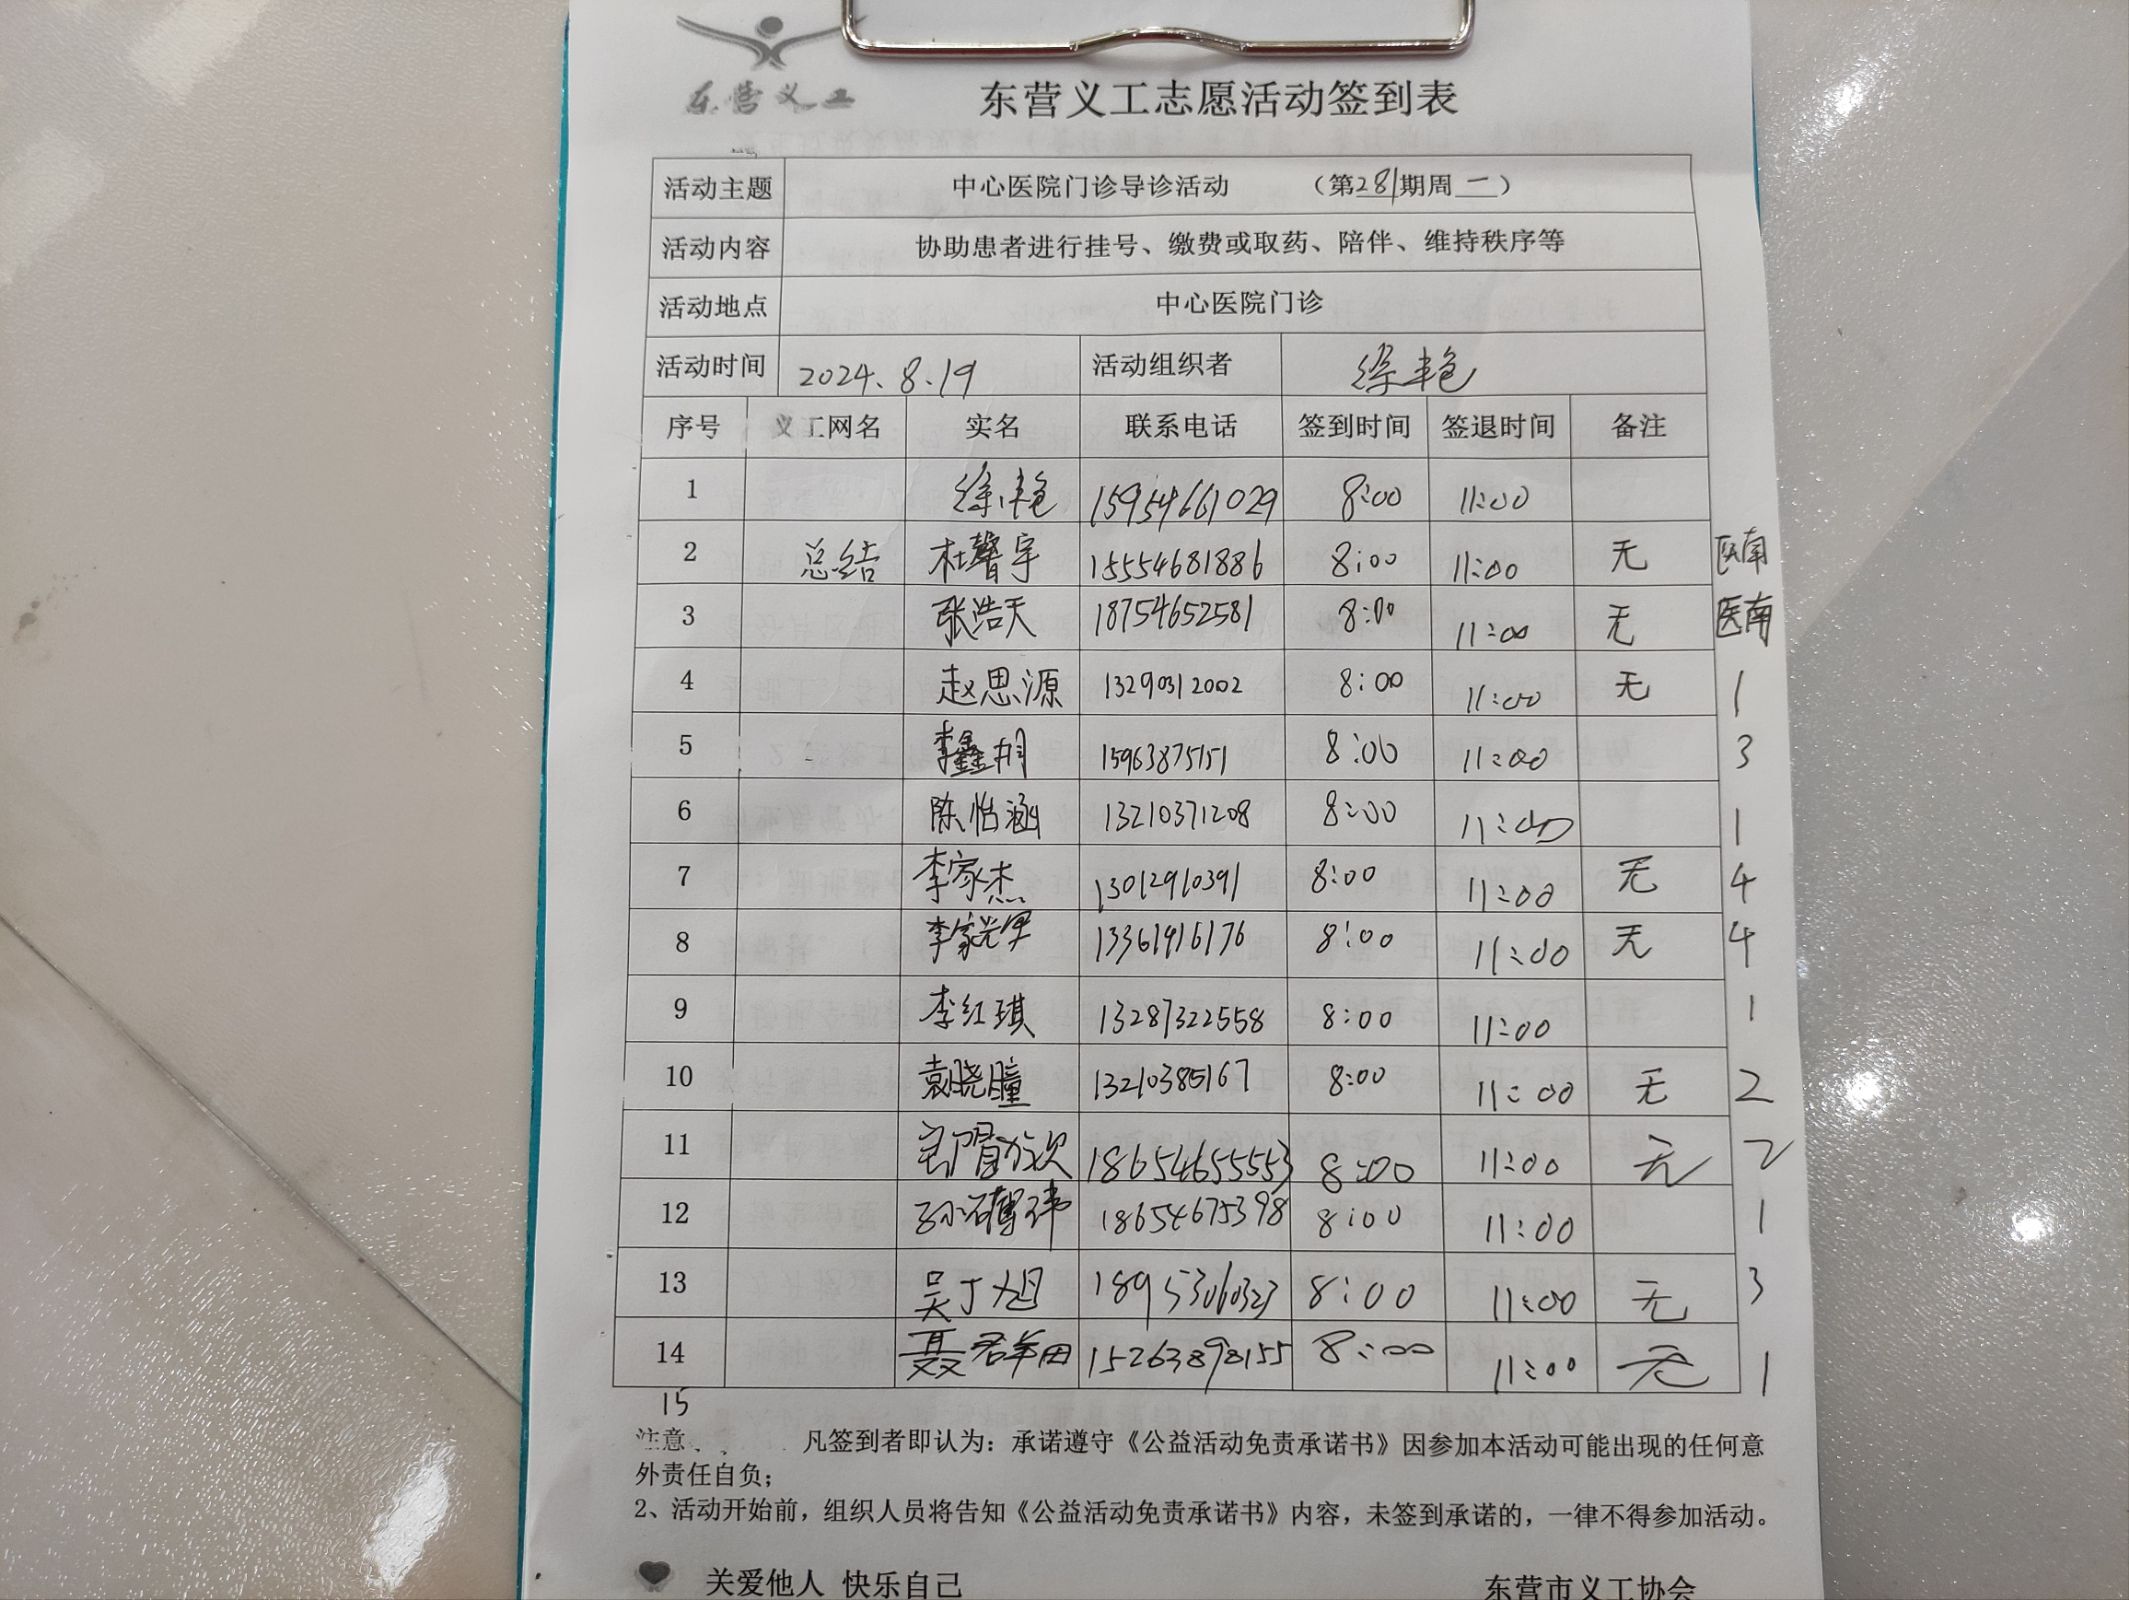 东营义工
东营义工志愿活动签到表
活动主题 中心医院门诊导诊活动 （第281期周一）
活动内容 协助患者进行挂号、缴费或取药、陪伴、维持秩序等
活动地点 中心医院门诊
活动时间 2024.8.19 活动组织者 徐艳
序号 义工网名 实名 联系电话 签到时间 签退时间 备注
1 徐艳 15954661029 8:00 11:00
2 总结 杜馨宇 15554681886 8:00 11:00 无 医南
3 张浩天 18754652581 8:00 11:00 无 医南
4 赵思源 13290312002 8:00 11:00 无 1
5 李鑫 15963875151 8:00 11:00 3
6 陈怡涵 13210371208 8:00 11:00 1
7 李家杰 13012910391 8:00 11:00 无 4
8 李家 13361916176 8:00 11:00 无 4
9 李红琪 13287322558 8:00 11:00 1
10 袁晓瞳 13210385167 8:00 11:00 无 2
11 18654655553 8:00 11:00 无 2
12 孙 18654675398 8:00 11:00 1
13 吴丁旭 18953060323 8:00 11:00 无 3
14 聂群 15263898155 8:00 11:00 无 1
15
注意 凡签到者即认为：承诺遵守《公益活动免责承诺书》因参加本活动可能出现的任何意
外责任自负；
2、活动开始前，组织人员将告知《公益活动免责承诺书》内容，未签到承诺的，一律不得参加活动。
关爱他人 快乐自己 东营市义工协会